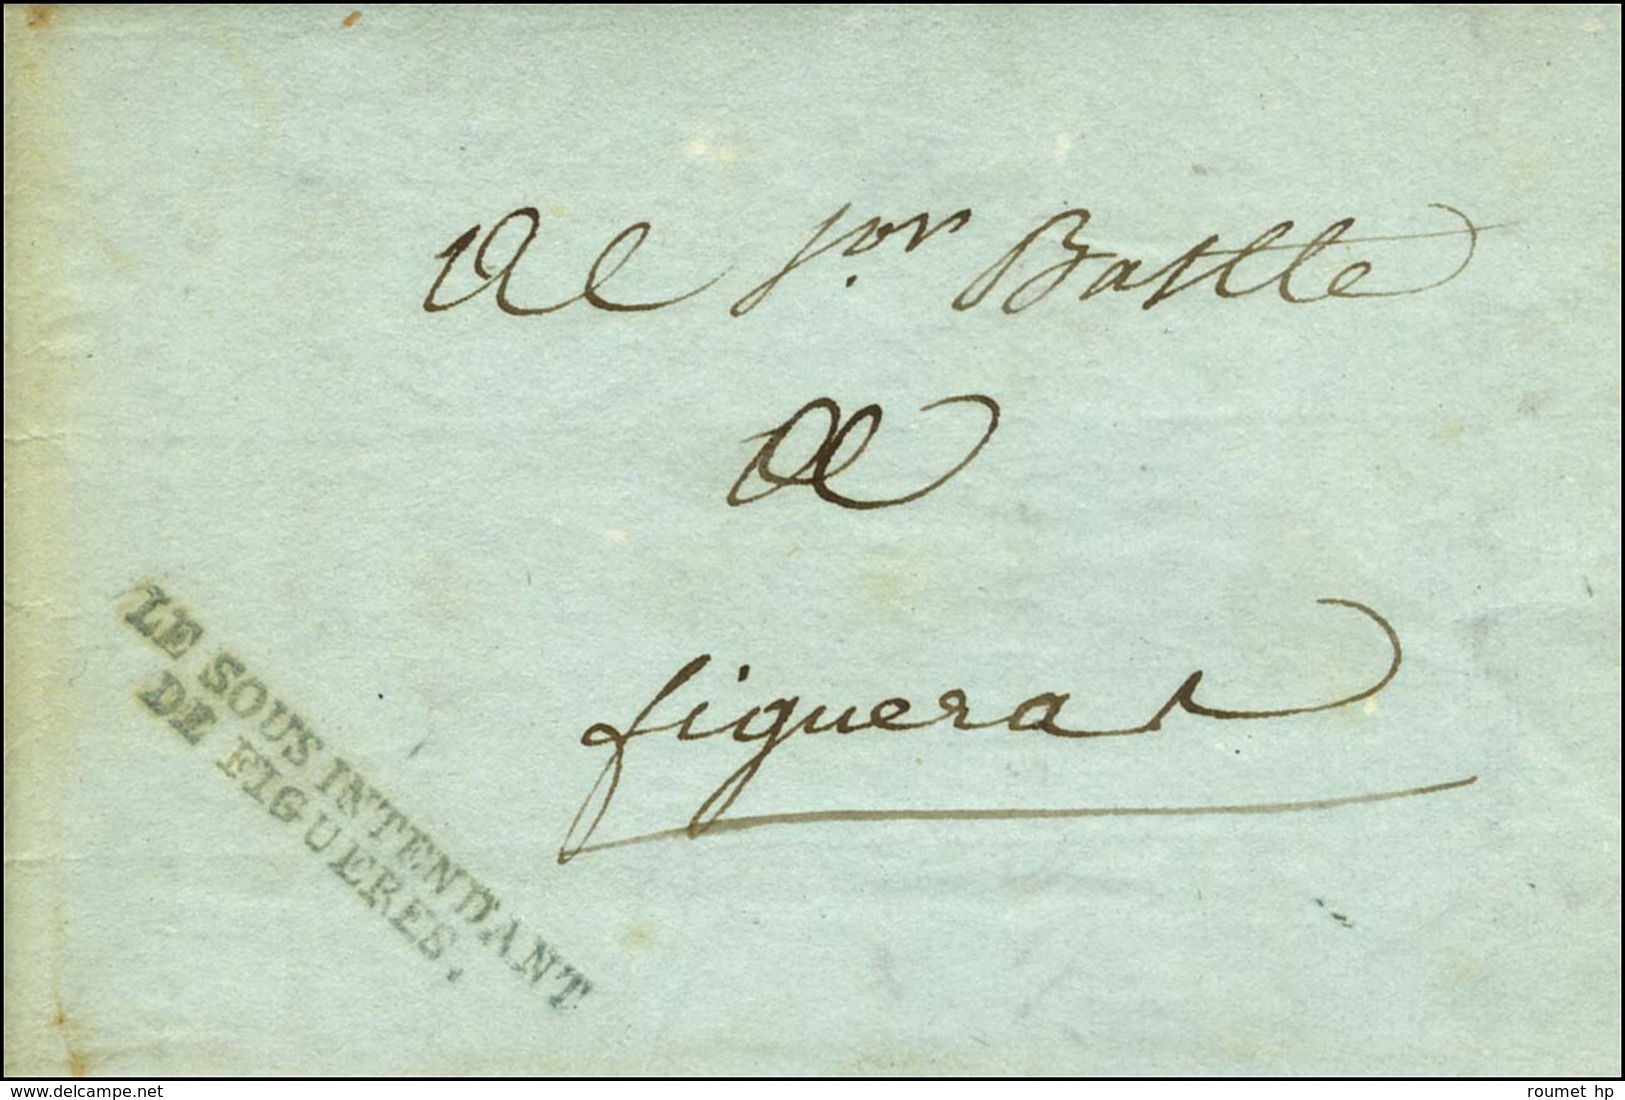 Al Sor. Batlle
de
figueras
LE SOUS INTENDANT
DE FIGUERES.
delcampe.net
roumet hp